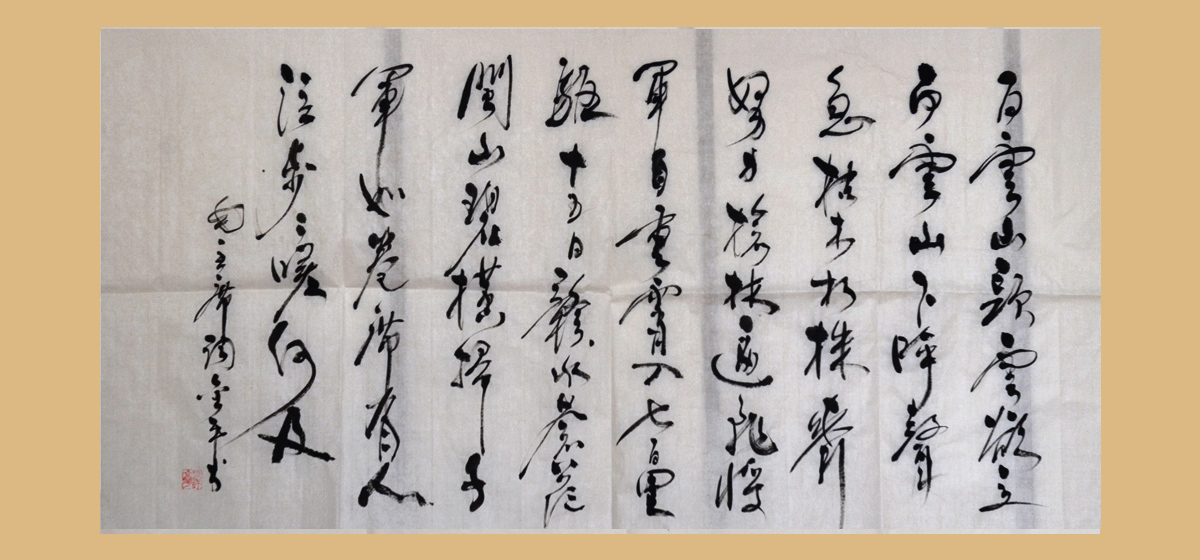 白雲山頭雲欲立
白雲山下呼聲
急枯木朽株齊
努力槍林逼飛將
軍自重霄入七百里
驅十五日贛水蒼茫
閩山碧橫掃千
軍如卷席有人
泣步々嗟何及
毛主席詞金平书